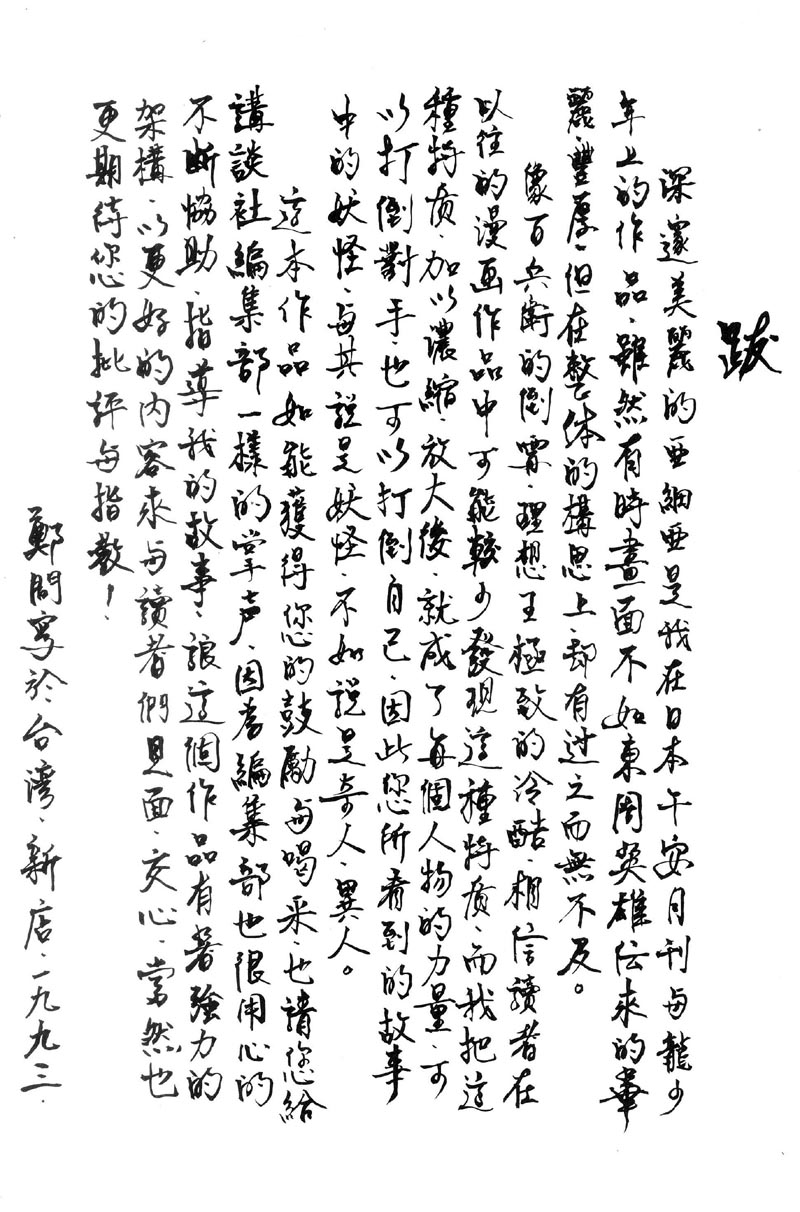 跋
深邃美麗的亞細亞是我在日本午安月刊与龍少
年上的作品、雖然有時畫面不如東周英雄伝來的華
麗、豐厚、但在整体的構思上、却有过之而無不及。
像百兵衛的倒霉、理想王極致的冷酷、相信讀者在
以往的漫画作品中可能較少發現這種特质、而我把這
種特质、加以濃縮、放大後、就成了每個人物的力量、可
以打倒對手、也可以打倒自己、因此您所看到的故事
中的妖怪、与其說是妖怪、不如說是奇人、異人。
這本作品如能獲得您的鼓勵与喝采、也請您給
講談社編集部一樣的掌声、因為編集部也很用心的
不断協助、指導我的故事、讓這個作品有著強力的
架構、以更好的内容來与讀者們見面、交心、當然也
更期待您的批評与指教！
鄭問寫於台湾、新店、一九九三、